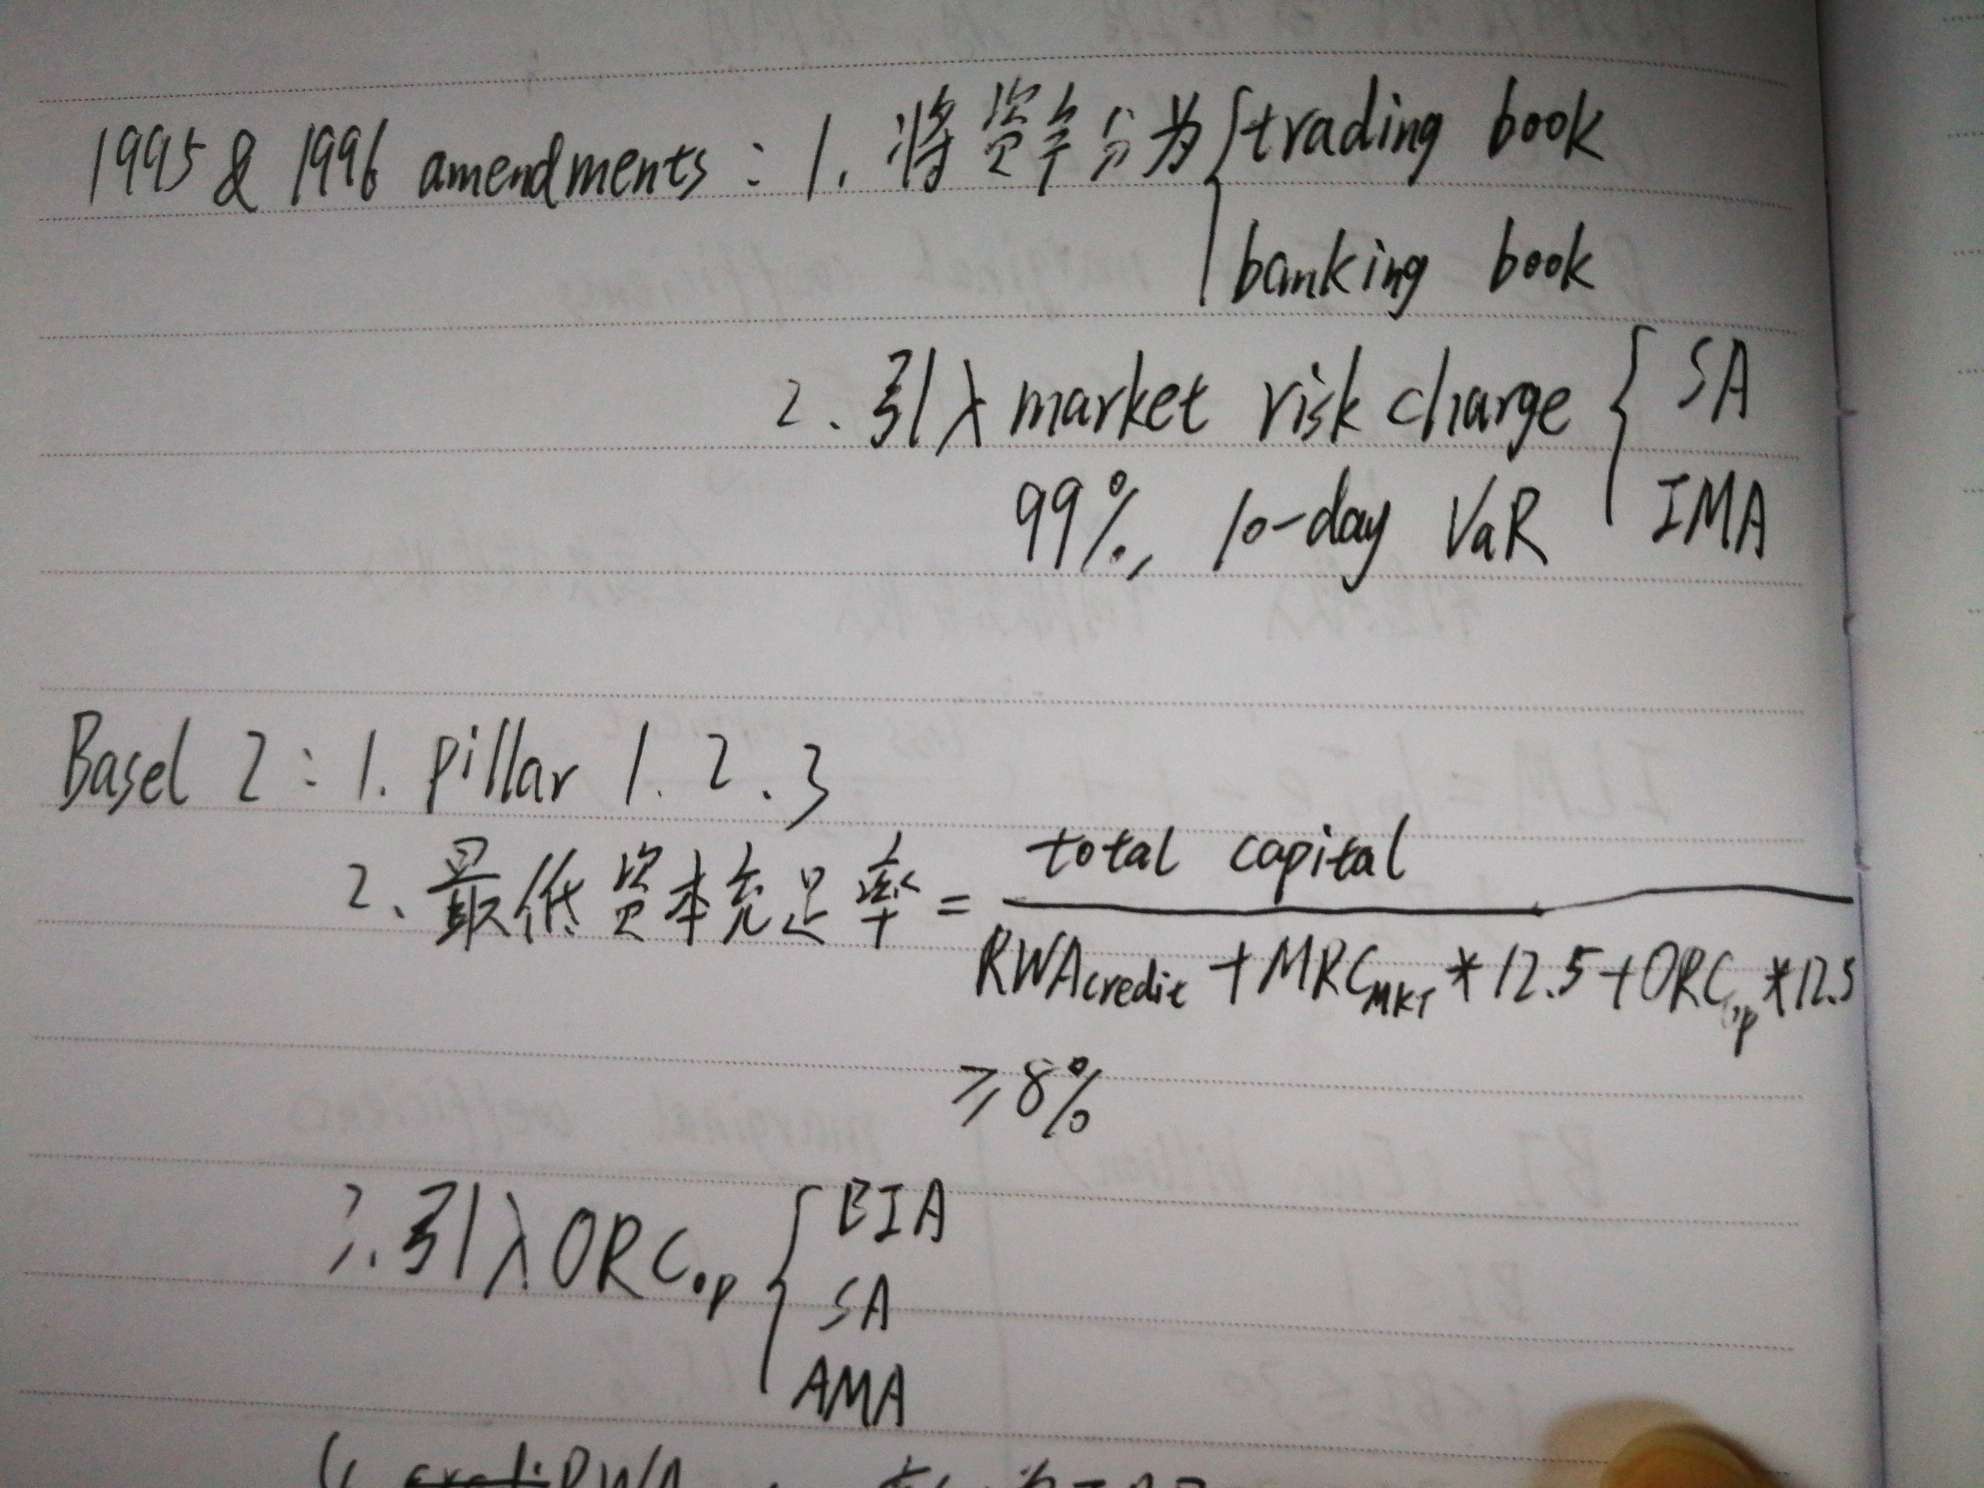 1995 & 1996 amendments : 1. 将资产分为 { trading book
banking book
2. 引入 market risk charge { SA
99%, 10-day VaR IMA
Basel 2 : 1. pillar 1. 2. 3
2. 最低资本充足率 = total capital
RWAcredit + MRCMKT * 12.5 + ORCop * 12.5
≥ 8%
3. 引入 ORCop { BIA
SA
AMA
RWA